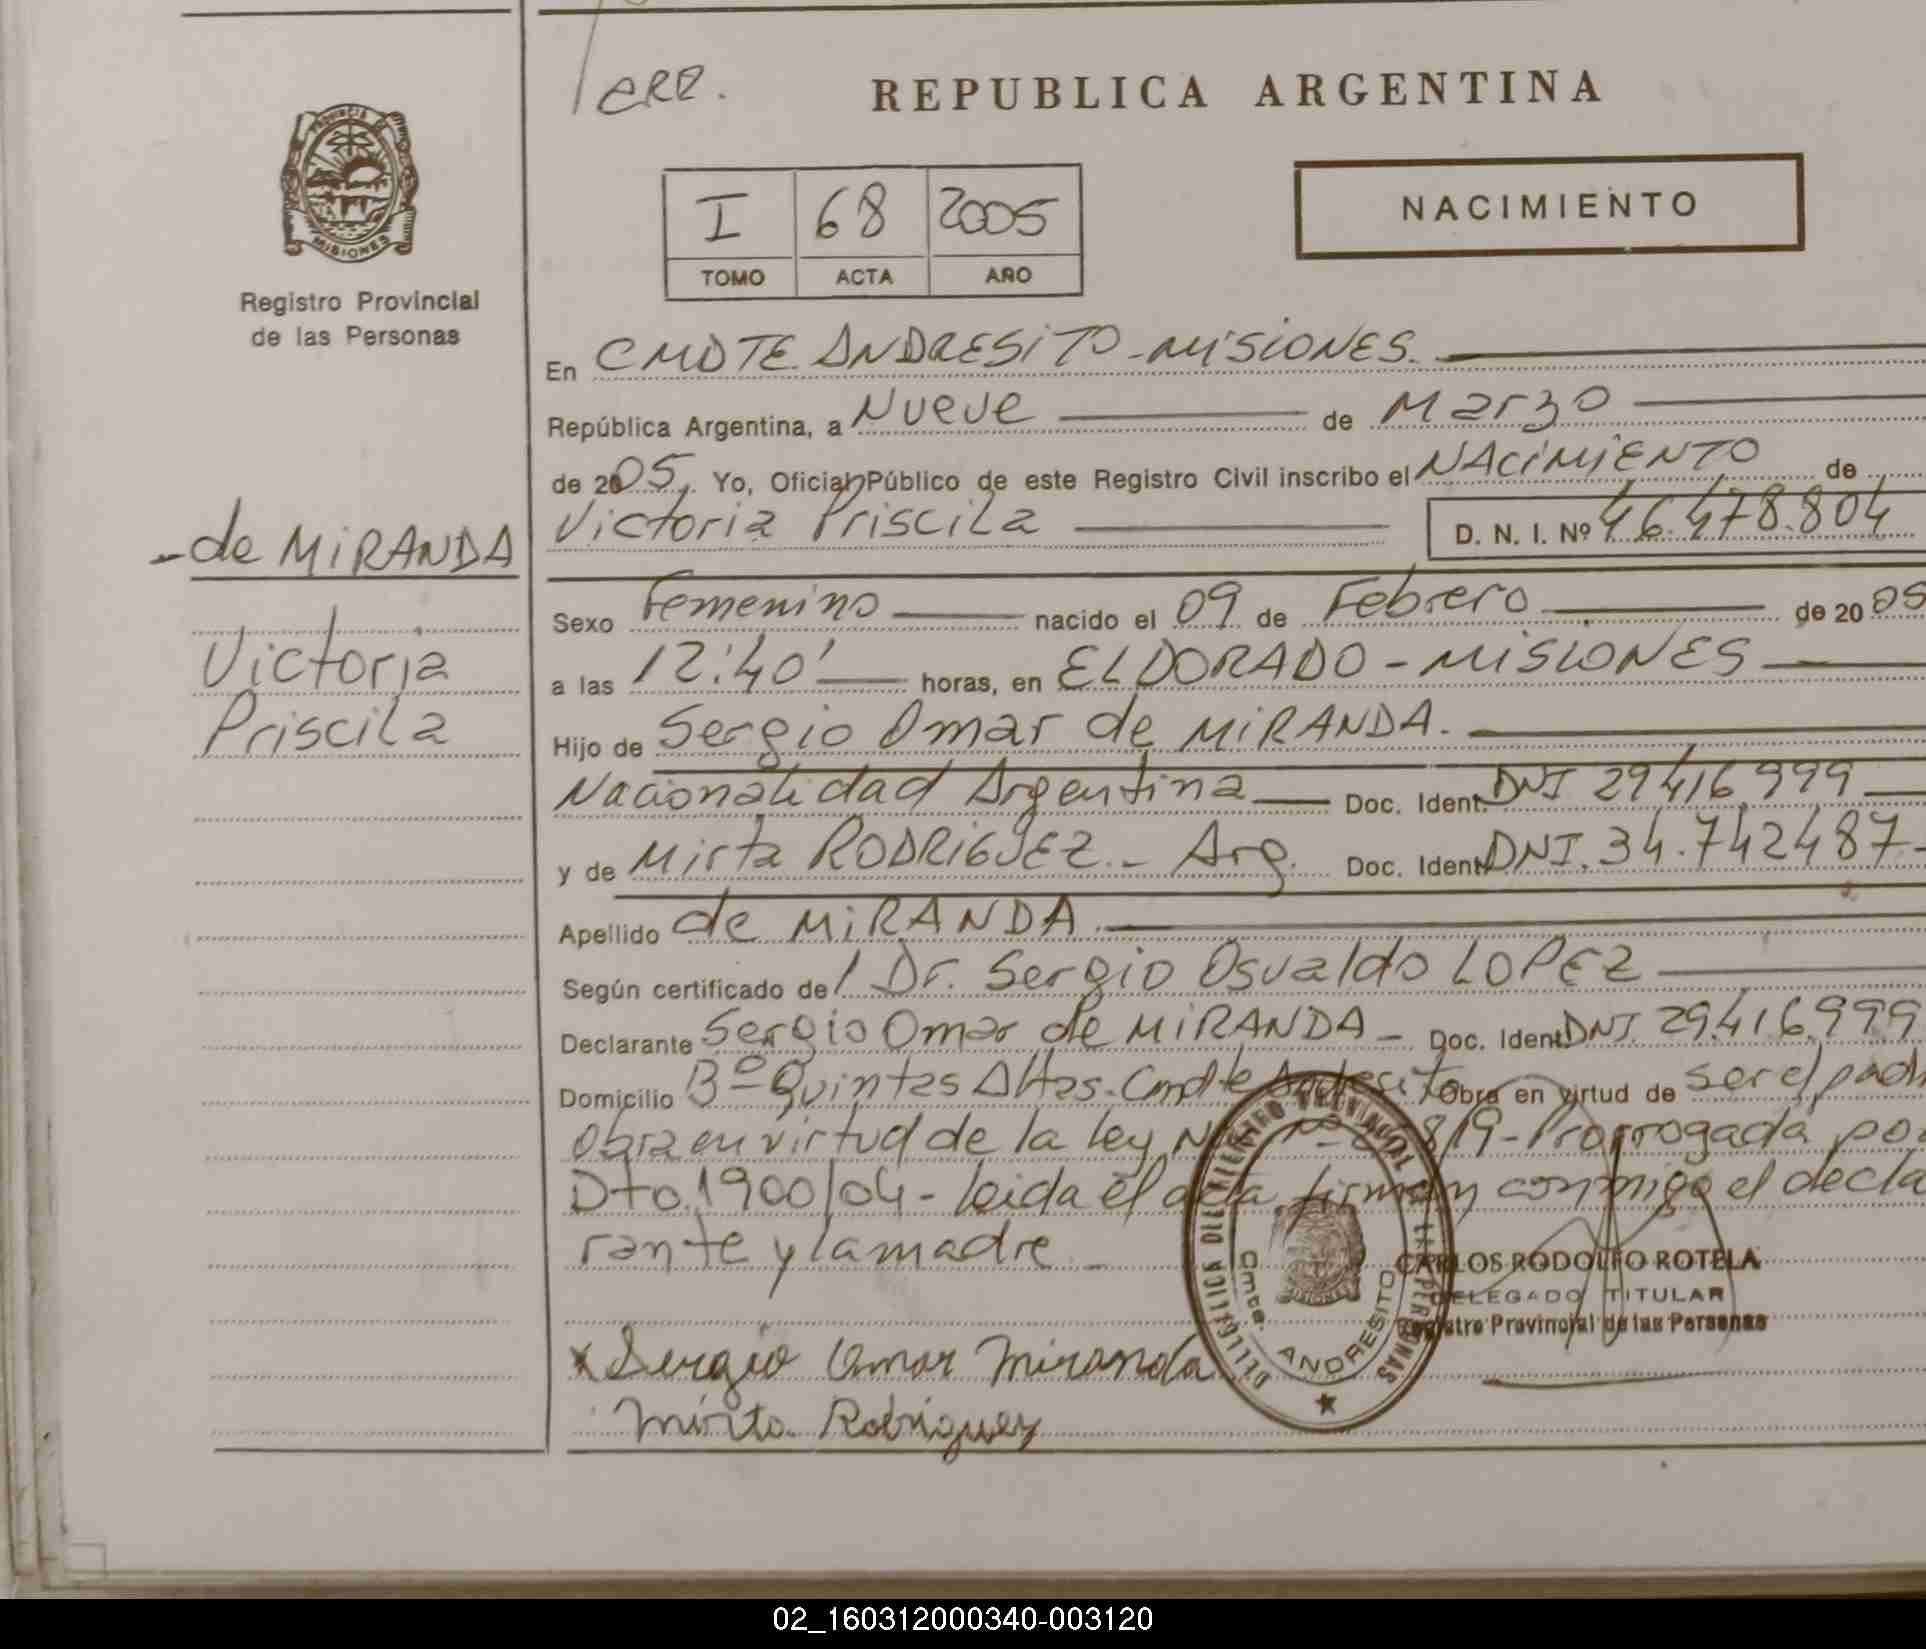 / CRR.
REPUBLICA ARGENTINA
PROVINCIA DE
MISIONES
Registro Provincial
de las Personas
I 68 2005
TOMO ACTA AÑO
NACIMIENTO
En CMDTE ANDRESITO - MISIONES.
República Argentina, a Nueve de Marzo
de 2005, Yo, Oficial Público de este Registro Civil inscribo el NACIMIENTO de
Victoria Priscila D. N. I. Nº 46.478.804
- de MIRANDA
Victoria
Priscila
Sexo Femenino nacido el 09 de Febrero de 20 05
a las 12:40' horas, en ELDORADO - MISIONES
Hijo de Sergio Omar de MIRANDA.
Nacionalidad Argentina Doc. Ident. DNI 29416999
y de Mirta RODRIGUEZ. - Arg. Doc. Ident. DNI. 34.742487-
Apellido de MIRANDA
Según certificado de / Dr. Sergio Osvaldo LOPEZ
Declarante Sergio Omar de MIRANDA - Doc. Ident. DNI. 29.416.999
Domicilio Bº Quintas Altas. Cmdte Andresito Obra en virtud de ser el padr
Obra en virtud de la ley 819 - Prorrogada po
Dto. 1900/04 - leida el acta firman conmigo el decla
rante y la madre -
CARLOS RODOLFO ROTELA
DELEGADO TITULAR
Registro Provincial de las Personas
x Sergio Omar Miranda
Mirta Rodriguez
Cmte. ANDRESITO
MISIONES
02_160312000340-003120